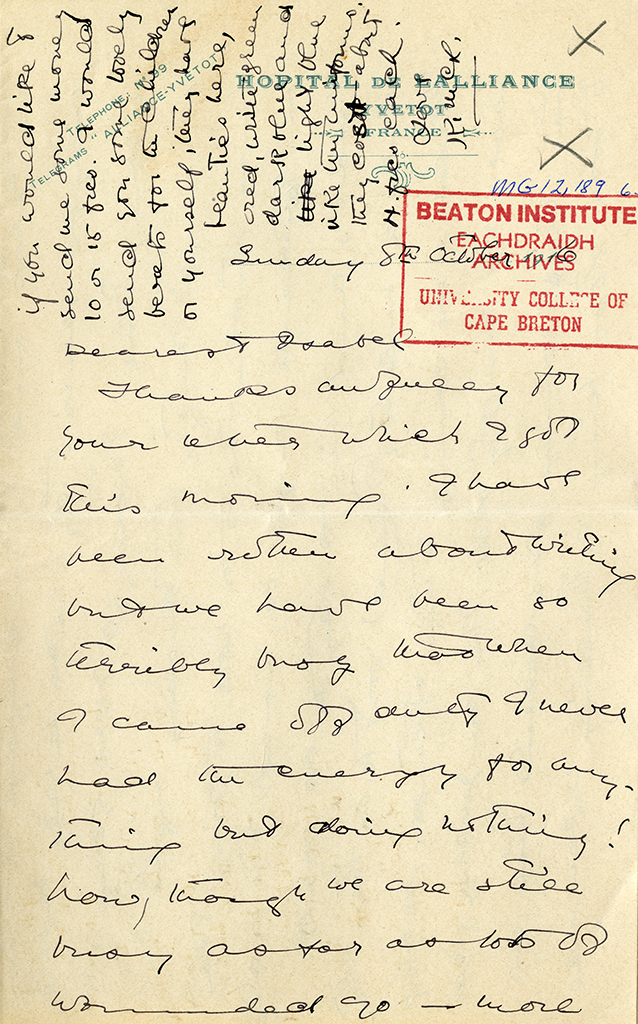 HOPITAL DE L'ALLIANCE
YVETOT
FRANCE
TELEPHONE: Nº 99
TELEGRAMS: ALLIANCE-YVETOT
MG 12, 189
BEATON INSTITUTE
EACHDRAIDH
ARCHIVES
UNIVERSITY COLLEGE OF
CAPE BRETON
Sunday 8th October 1916
Dearest Isabel
Thanks awfully for
your letter which I got
this morning. I have
been rotten about writing
but we have been so
terribly busy that when
I came off duty I never
had the energy for any-
thing but doing nothing!
now, though we are still
busy as far as lots of
wounded go — more
if you would like to
send me some money
10 or 15 frcs. I would
send you some lovely
berets for the children
or yourself, they have
beauties here,
red, white, green
dark blue and
like light blue
like our uniforms.
they cost about
4 frcs each.